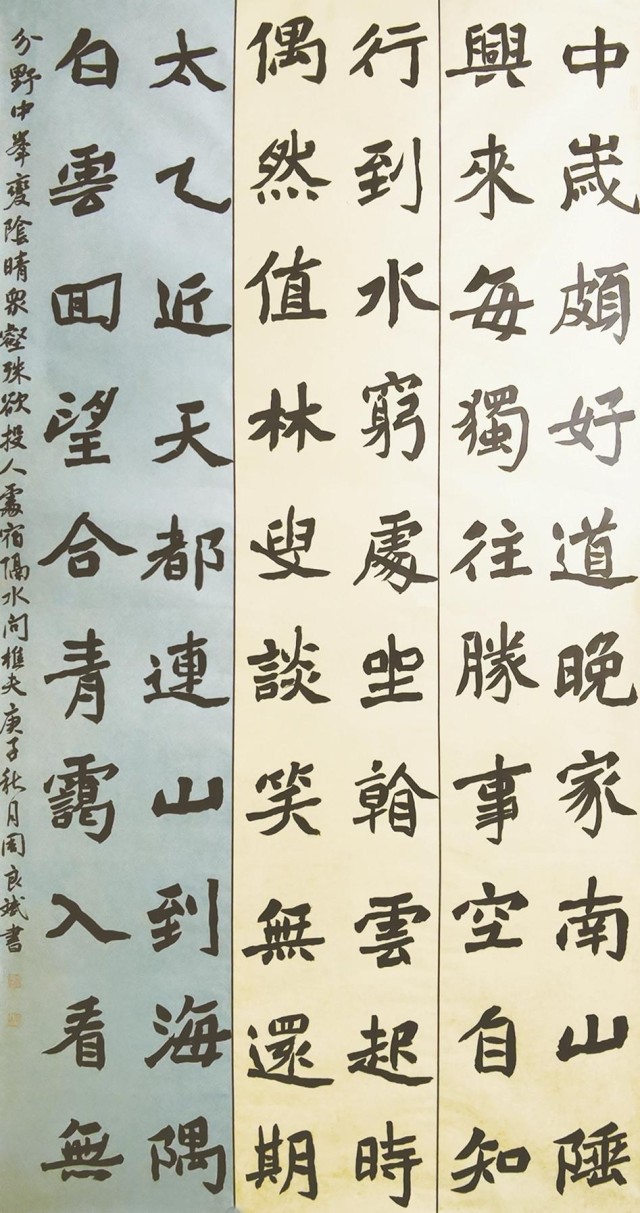 中歲頗好道晚家南山陲
興來每獨往勝事空自知
行到水窮處坐看雲起時
偶然值林叟談笑無還期
太乙近天都連山到海隅
白雲回望合青靄入看無
分野中峯變陰晴眾壑殊欲投人處宿隔水問樵夫庚子秋月周良斌書